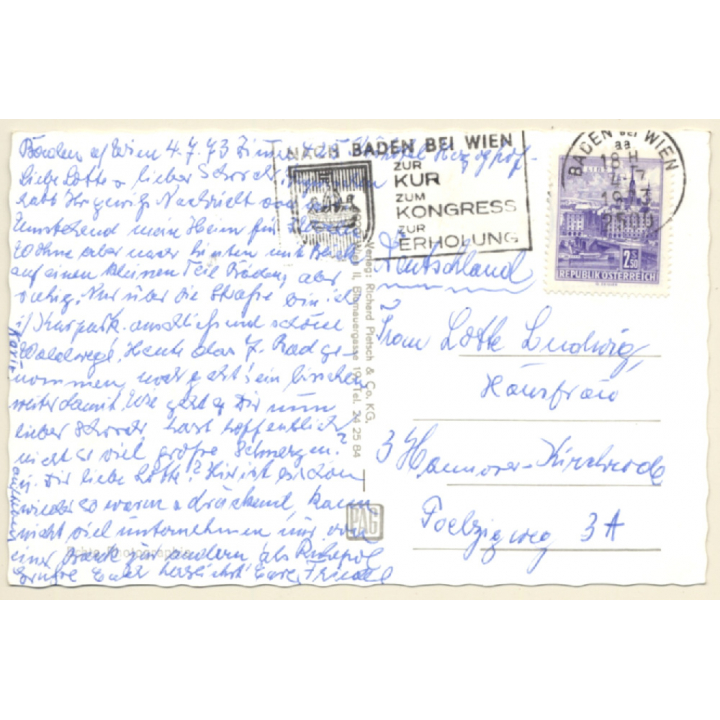 Baden b/Wien 4.7.73 Zimmer
Liebe Lotte u lieber Schorch,
habt Ihr gewiß Nachricht von
Umstehend mein Heim für
Wohne aber nach hinten mit
auf einen kleinen Teil Badens, aber
ruhig. Nur über die Straße bin ich
i/ Kurpark. anschließend schöne
Waldwege. Heute das 7. Bad ge-
nommen, nun geht's ein bischen
weiter damit. Wie geht es Dir nun
lieber Schorch, hast hoffentlich
nicht so viel große Schmerzen?
u. Dir liebe Lotte? Hier ist es schon
wieder so warm u drückend, kann
nicht viel unternehmen, nur von
einer Bank zur andern als Ruhepol
Grüße Euch herzlichst Eure Friedl
NACH BADEN BEI WIEN
ZUR
KUR
ZUM
KONGRESS
ZUR
ERHOLUNG
BADEN BEI WIEN
aa
18 H
4-7
1973
2500
2.50
REPUBLIK ÖSTERREICH
Verlag: Richard Pietsch & Co. KG.
Wien II, Blumauergasse 19, Tel. 24 25 84
PAG
Deutschland
Frau Lotte Ludwig,
Hausfrau
3 Hannover-Kirchrode
Poelzigweg 3A